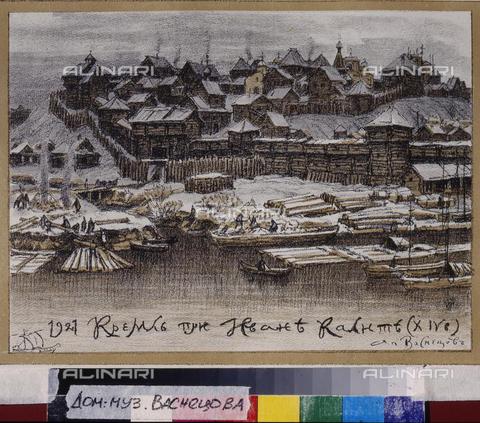 ALINARI ALINARI
ALINARI ALINARI
1921 Кремль при Иванѣ Калитѣ (XIVв)
Ап Васнецовъ
ALINARI ALINARI
ДОМ-МУЗ. ВАСНЕЦОВА